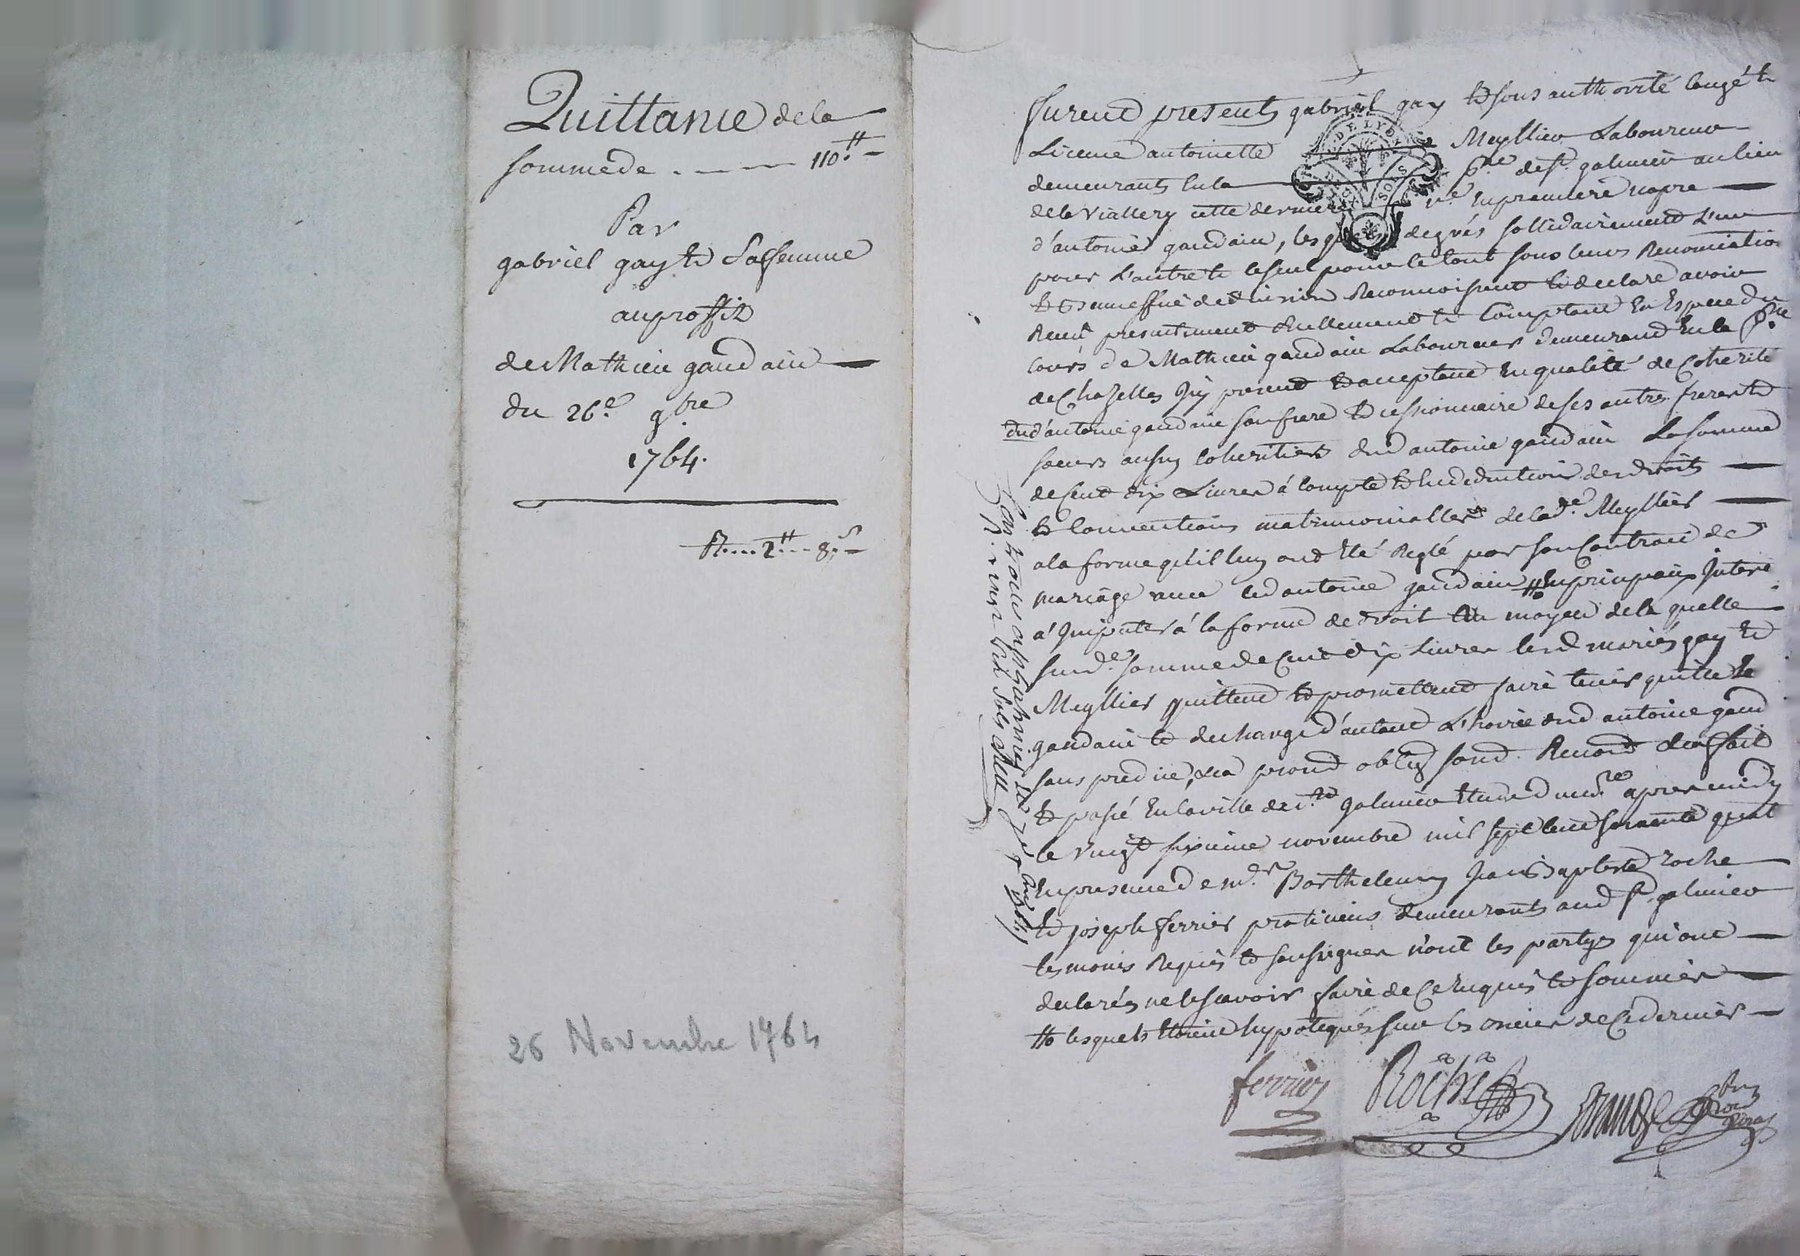 Quittance de la
somme de . — — 110.tt —
Par
gabriel gay et Sa femme
au proffit
de Mathieu gaudain —
du 26.e 9.bre
1764.
R.... 2.tt ... 8.s —
26 Novembre 1764
furent presents gabriel gay et sous authorité congé et
Licence antoinette Meyllier Laboureur
demeurants en la p.sse de s.t galmier au lieu
de la Viallery cette derniere v.e en premiere nopce
d'antoine gaudain, les quels de grés sollidairement L'un
pour L'autre et le seul pour le tout sous leurs Renonciation
et de division Reconnoissent et declare avoir
Receu presentement Reellement et Comptant En Espece du
Cours de Mathieu gaudain Laboureur demeurant En la p.sse
de Chazelles Icy present et acceptant En qualité de Coheritié
dud antoine gaudain son frere et cessionnaire de ses autres freres et
soeurs aussy Coheritiers dud antoine gaudain La somme
de Cent dix Livres á compte et en deduction des droits
et Conventions matrimonialles de lad.e Meyllier
a la forme qu'il luy ont eté Reglé par son Contract de
mariage avec led antoine gaudain # En principaux Interé
á Imputer á la forme de droit Au moyen de la quelle
susd.e somme de Cent dix Livres lesd mariés gay et
Meyllier quittent et promettent faire tenir quitte le
gaudain et decharge d'autant L'hoirie dud antoine gaud
sans prejudice, car promet oblig soud. Renont ainsi fait
et passé En la ville de s.t galmier Etude du no.re apres midy
le vingt sixieme novembre mil sept cent soixante quat
En presence de m.r Barthelemy Jean Baptiste roche
et joseph ferrier praticiens demeurants aud s.t galmier
temoins Requis et soussignes non les partyes qui ont
declarés ne le scavoir faire de Ce Enquis et sommés
# lesquels etoient hypotequés sur les Biens de Ce dernier
Controllé a s.t galmier le 7.e x.bre 1764
R. vingt six sols
ferrier
Roche